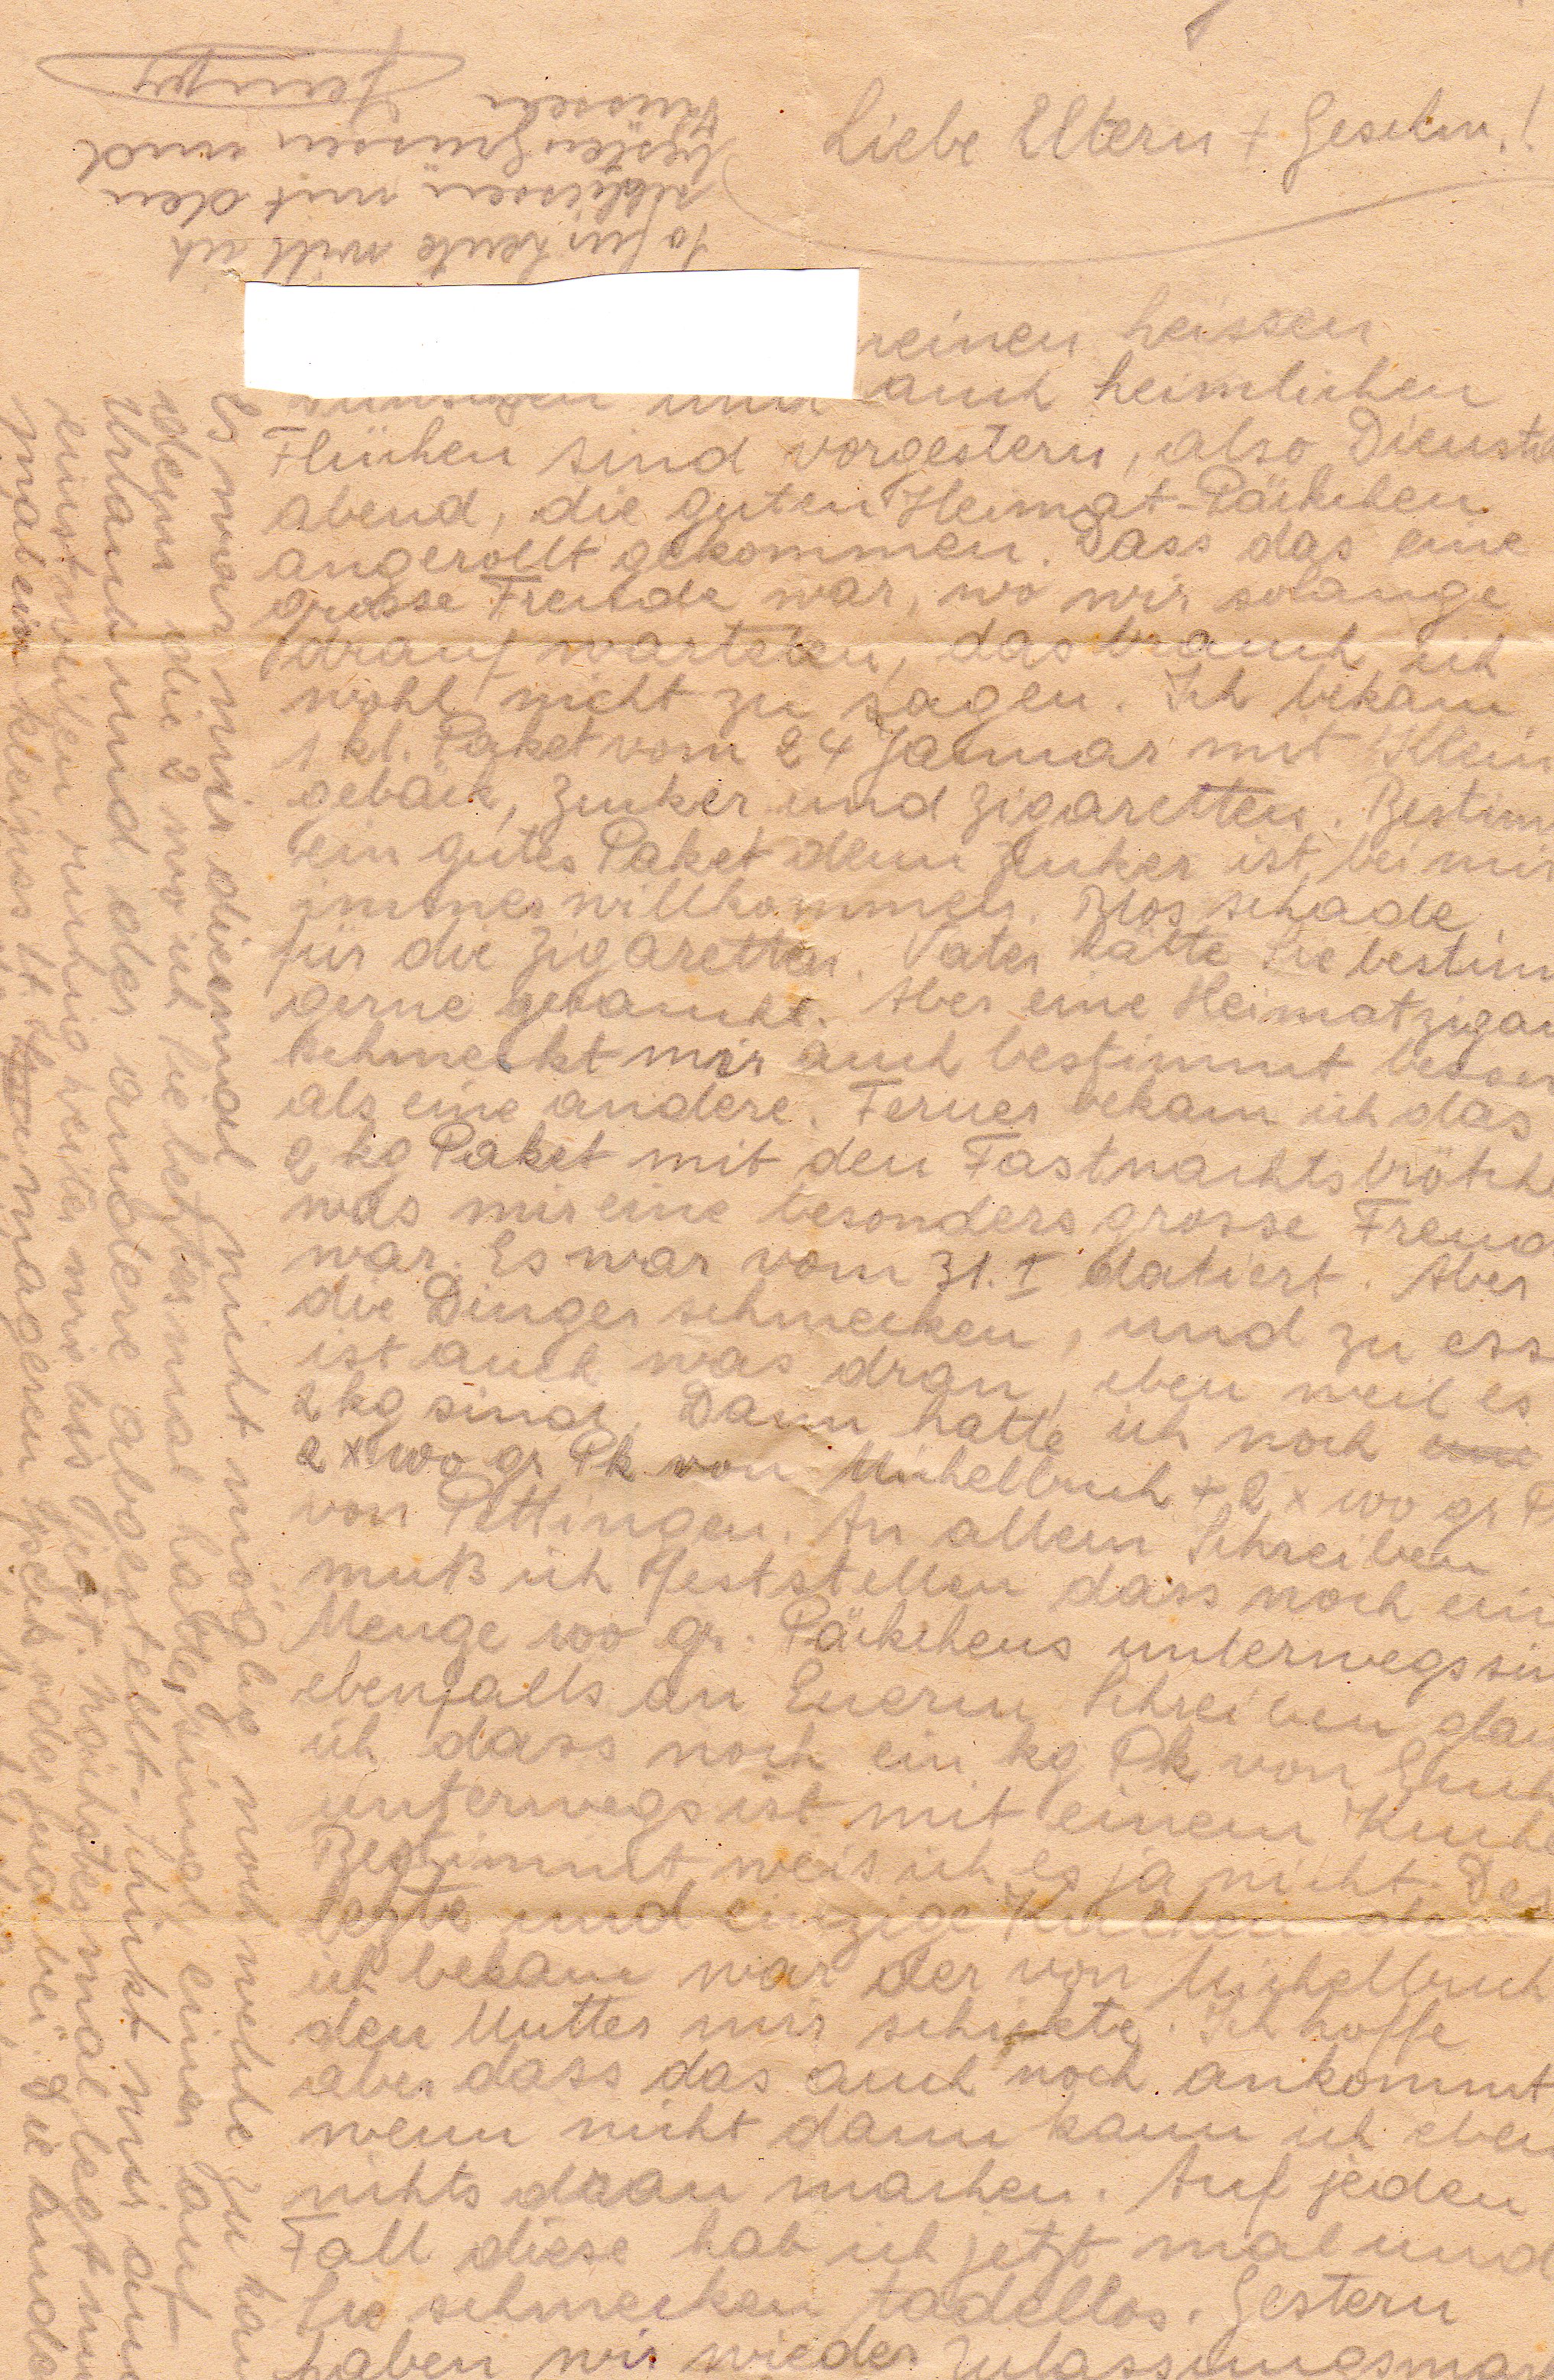 Liebe Eltern + Geschw.!
meinen heissen
und auch heimlichen
Flüchen sind vorgestern, also Dienst
abend, die guten Heimat-Päckchen
angerollt gekommen. Dass das eine
grosse Freude war, wo wir solange
drauf warteten, das brauch ich
wohl nicht zu sagen. Ich bekam
1 kl. Paket vom 24 Januar mit Klein
gebäck, Zucker und Zigaretten. Bestim
ein gutes Paket denn Zucker ist bei mir
immer willkommen. Blos schade
für die Zigaretten. Vater hätte sie bestim
gerne geraucht. Aber eine Heimatzigar
schmeckt mir auch bestimmt besser
als eine andere. Ferner bekam ich das
2 kg Paket mit den Fastnachtsbrötch
was mir eine besonders grosse Freud
war. Es war vom 31.I datiert. Aber
die Dinger schmecken, und zu ess
ist auch was dran, eben weil es
2 kg sind. Dann hatte ich noch
2 x 100 gr Pk von Michelbuch + 2 x 100 gr P
von Pettingen. An allem Schreiben
muß ich feststellen dass noch ein
Menge 100 gr. Päckchens unterwegs sin
ebenfalls an Euerm Schreiben glau
ich dass noch ein kg Pk von Euch
unterwegs ist mit einem Kuche
Bestimmt weis ich es ja nicht. Der
letzte und einzige Kuchen
ich bekam war der von Michelbuch
den Mutter mir schickte. Ich hoffe
aber dass das auch noch ankommt
wenn nicht dann kann ich eben
nichts dran machen. Auf jeden
Fall diese hab ich jetzt mal und
sie schmecken tadellos. Gestern
haben wir wieder Zulassungsmar
Es war mir diesmal nicht möglich noch welche zu
die 2 wo ich sie letztesmal habe, sind einer auf
Urlaub und der andere abgestellt. Schickt mir
einstweilen ruhig weiter mir bis jetzt. Nächstes mal legt
mal ein kleines St. mageren Speck oder bei. Die
So für heute will ich
schliessen mit den
besten Grüssen und
Küssen